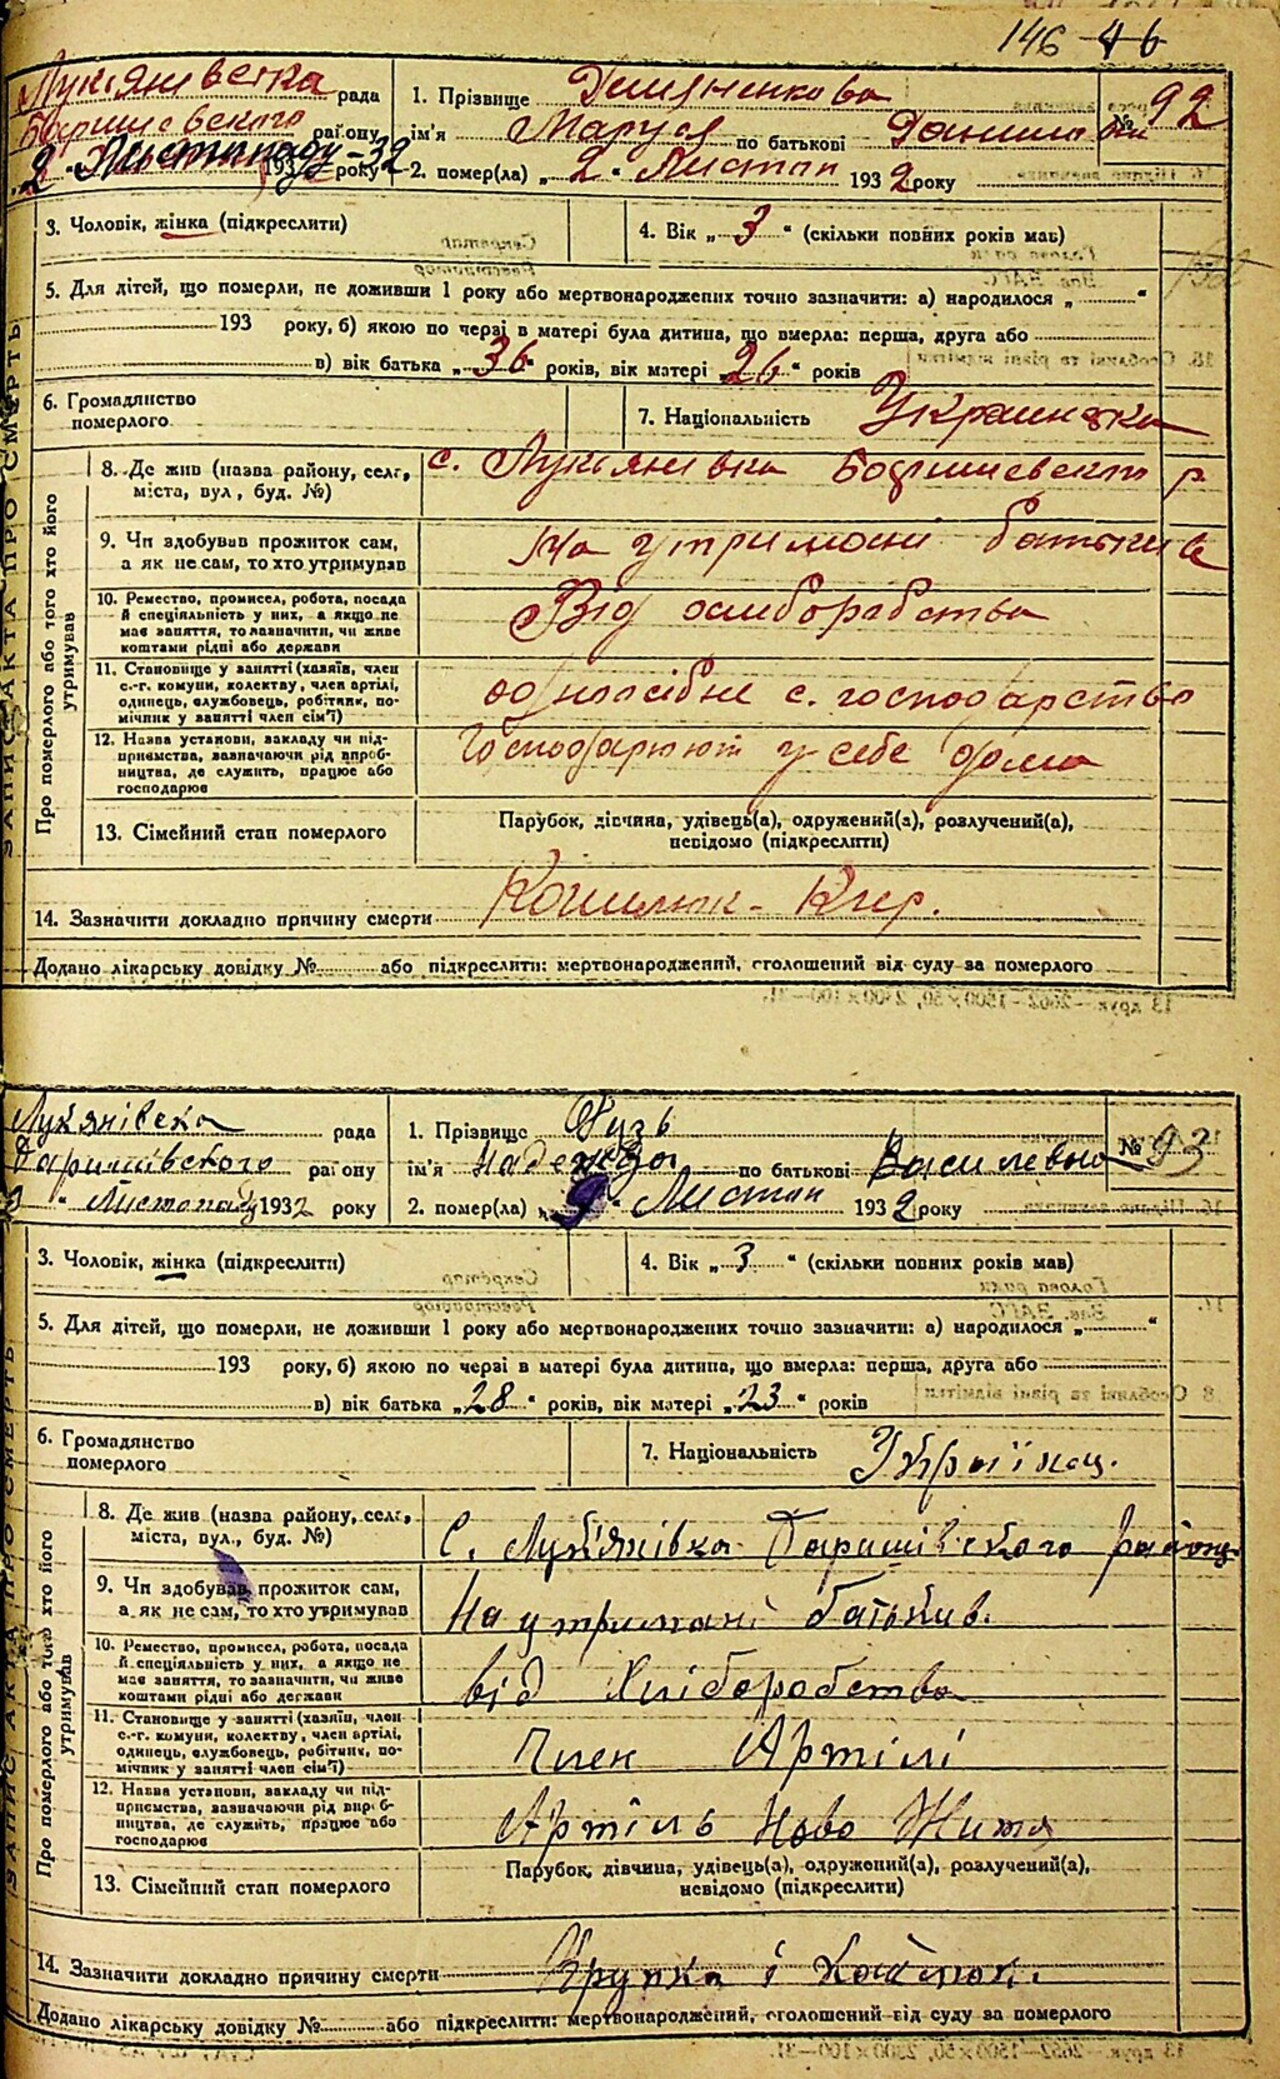 146 46
Лукіянівська рада
Баришевского району
2 Листопаду-32 193 року
1. Прізвище Демяненкова № 92
ім'я Маруся по батькові Данилова
2. помер(ла) „ 2 “ Листоп 1932 року
3. Чоловік, жінка (підкреслити)
4. Вік „ 3 “ (скільки повних років мав)
5. Для дітей, що померли, не доживши 1 року або мертвонароджених точно зазначити: а) народилося „ “
193 року, б) якою по черзі в матері була дитина, що вмерла: перша, друга або
в) вік батька „ 36 “ років, вік матері „ 26 “ років
6. Громадянство
померлого
7. Національність Украинська
ЗАПИС АКТА ПРО СМЕРТЬ
Про померлого або того хто його утримував
8. Де жив (назва району, села,
міста, вул., буд. №)
с. Лукьянівка Баришевского р
9. Чи здобував прожиток сам,
а як не сам, то хто утримував
На утримані батьків
10. Ремество, промисел, робота, посада
й спеціяльність у них, а якщо не
має заняття, то зазначити, чи живе
коштами рідні або держави
Від хлиборабства
11. Становище у занятті (хазяїн, член
с.-г. комуни, колектву, член артілі,
одинець, службовець, робітник, по-
мічник у занятті член сім'ї)
одноосібне с. господарство
12. Назва установи, закладу чи під-
приємства, зазначаючи рід вироб-
ництва, де служить, працює або
господарює
Господарюют у себе дома
13. Сімейний стан померлого
Парубок, дівчина, удівець(а), одружений(а), розлучений(а),
невідомо (підкреслити)
14. Зазначити докладно причину смерти
Додано лікарську довідку № або підкреслити: мертвонароджений, оголошений від суду за померлого
13 друк.—2662—1500×50, 2300×100—31.
Лукянівска рада
Баришівського району
Листопаду 1932 року
1. Прізвище Гузь № 93
ім'я Надежда по батькові Василевна
2. помер(ла) „ 9 “ Листоп 1932 року
3. Чоловік, жінка (підкреслити)
4. Вік „ 3 “ (скільки повних років мав)
5. Для дітей, що померли, не доживши 1 року або мертвонароджених точно зазначити: а) народилося „ “
193 року, б) якою по черзі в матері була дитина, що вмерла: перша, друга або
в) вік батька „ 28 “ років, вік матері „ 23 “ років
6. Громадянство
померлого
7. Національність Українец.
ЗАПИС АКТА ПРО СМЕРТЬ
Про померлого або того хто його утримував
8. Де жив (назва району, села,
міста, вул., буд. №)
С. Лук'янівка Баришівского району
9. Чи здобував прожиток сам,
а як не сам, то хто утримував
На утримані батькив.
10. Ремество, промисел, робота, посада
й спеціяльність у них, а якщо не
має заняття, то зазначити, чи живе
коштами рідні або держави
від Хліборобства
11. Становище у занятті (хазяїн, член
с.-г. комуни, колектву, член артілі,
одинець, службовець, робітник, по-
мічник у занятті член сім'ї)
Член Артілі
12. Назва установи, закладу чи під-
приємства, зазначаючи рід вироб-
ництва, де служить, працює або
господарює
Артіль Ново Життя
13. Сімейний стан померлого
Парубок, дівчина, удівець(а), одружений(а), розлучений(а),
невідомо (підкреслити)
14. Зазначити докладно причину смерти Крупка і
Додано лікарську довідку № або підкреслити: мертвонароджений, оголошений від суду за померлого
13 друк.—2662—1500×50, 2300×100—31.